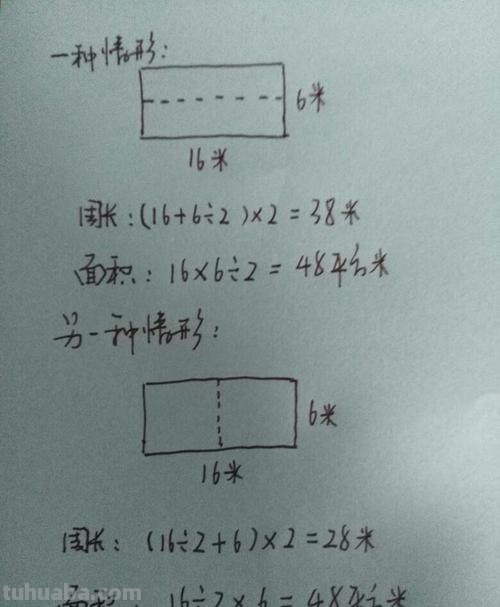 一种情形:
6米
16米
周长:(16+6÷2)×2=38米
面积:16×6÷2=48平方米
另一种情形:
6米
16米
周长:(16÷2+6)×2=28米
面积:16÷2×6=48平方米
tuhuaba.com